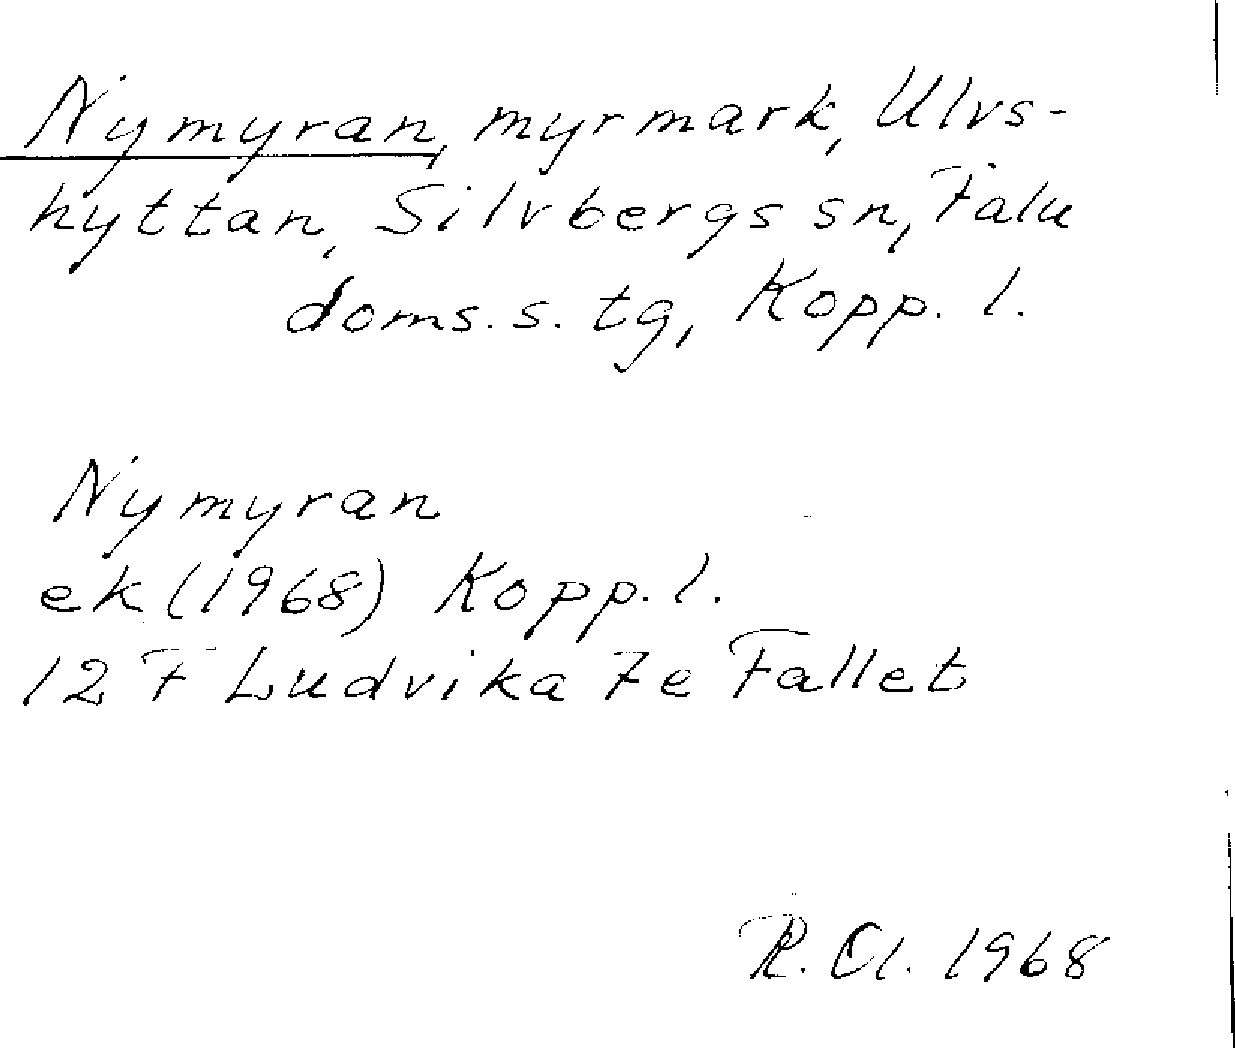 Nymyran, myrmark, Ulvs-
hyttan, Silvbergs sn, Falu
doms. s. tg, Kopp. l.
Nymyran
ek (1968) Kopp. l.
12 F Ludvika 7e Fallet
R. Cl. 1968